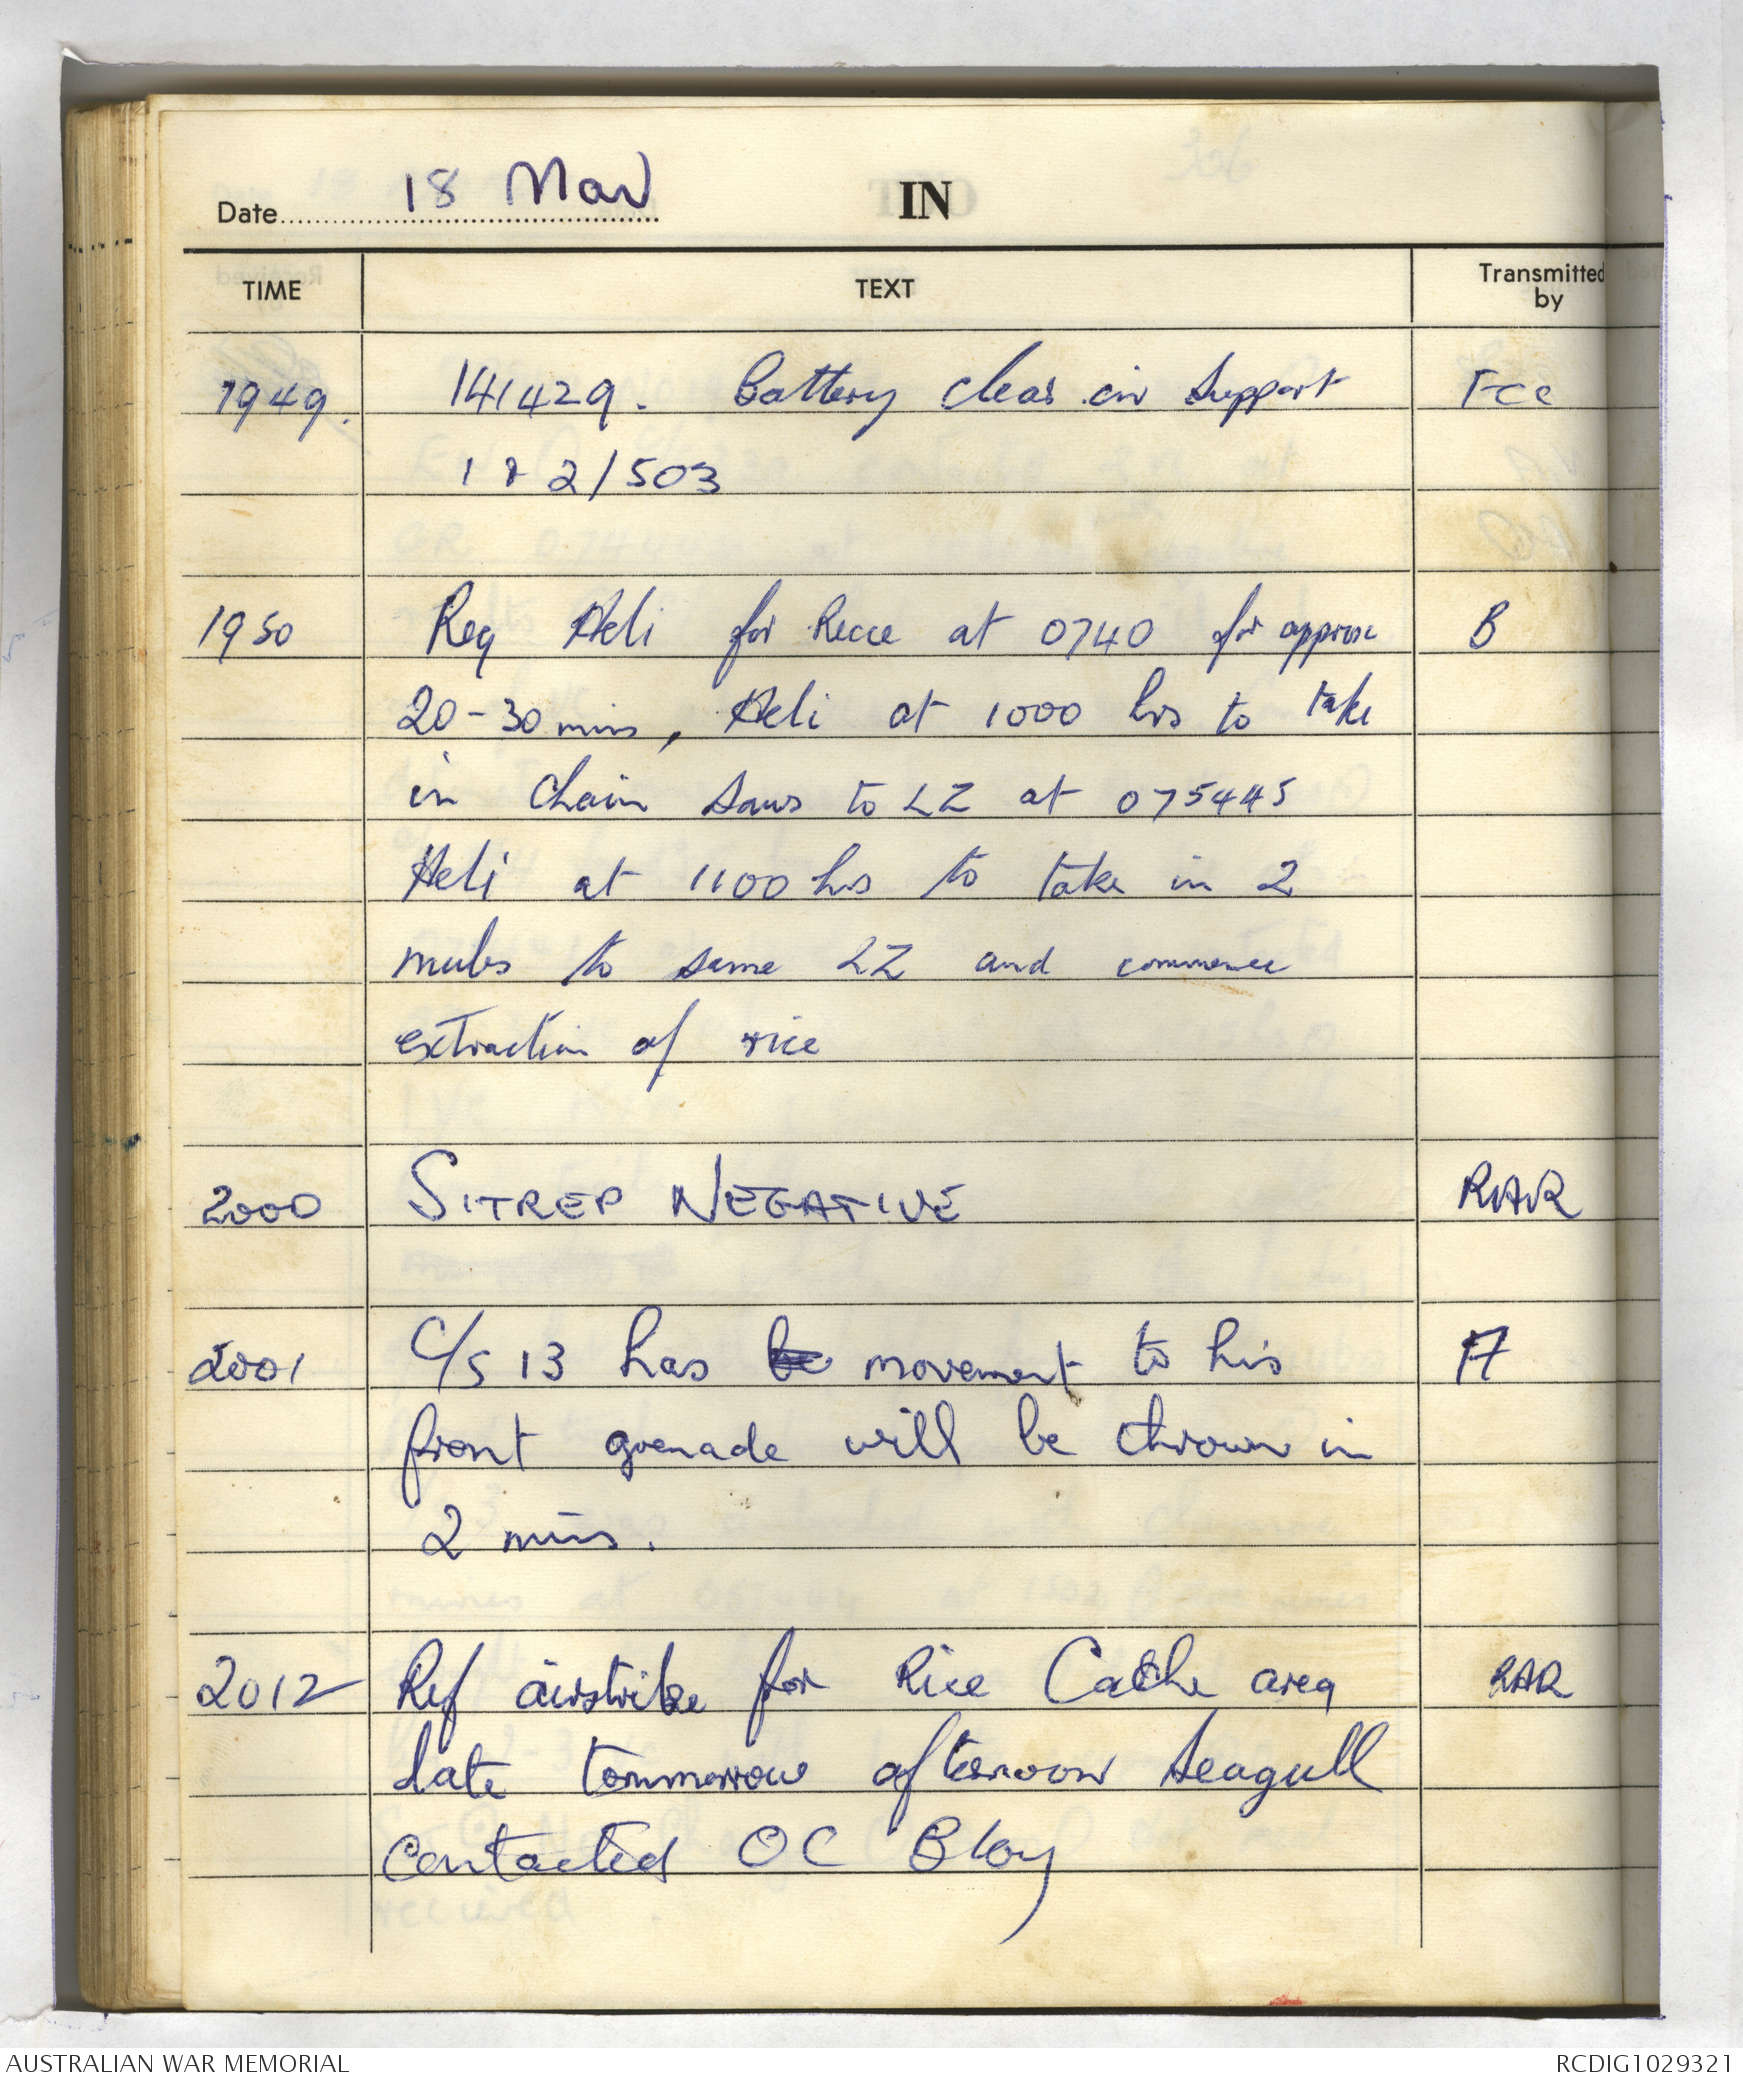 Date 18 Mar
IN
TIME TEXT Transmitted by
1949. 141429. Battery clear in support Fce
1 & 2/503
1950 Req Heli for Recce at 0740 for approx B
20-30 mins, Heli at 1000 hrs to take
in chain saws to LZ at 075445
Heli at 1100 hrs to take in 2
mules to same LZ and commence
extraction of rice
2000 SITREP NEGATIVE RAR
2001 C/S 13 has movement to his A
front grenade will be thrown in
2 mins.
2012 Ref airstrike for Rice Cache area RAR
late tommorrow afternoon Seagull
contacted OC B Coy
AUSTRALIAN WAR MEMORIAL RCDIG1029321